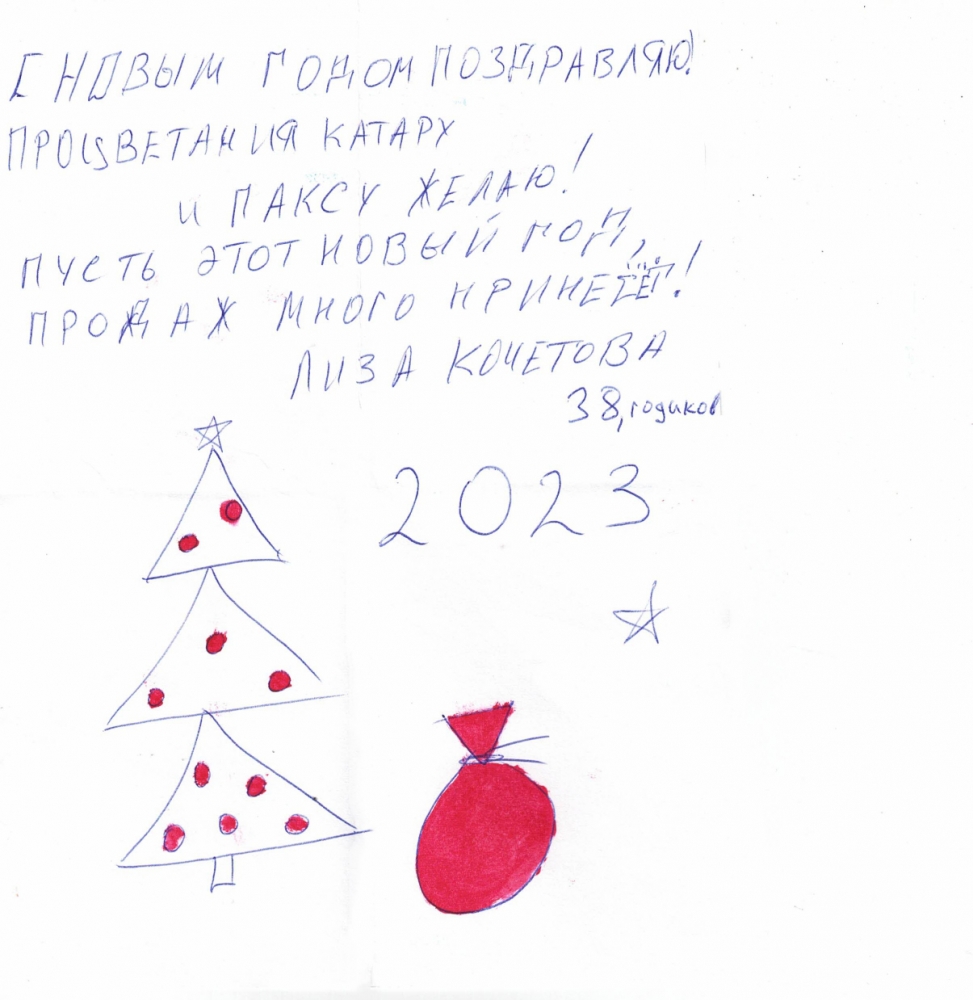 С НОВЫМ ГОДОМ ПОЗДРАВЛЯЮ!
ПРОЦВЕТАНИЯ КАТАРУ
И ПАКСУ ЖЕЛАЮ!
ПУСТЬ ЭТОТ НОВЫЙ ГОД,
ПРОДАЖ МНОГО ПРИНЕСЁТ!
ЛИЗА КОЧЕТОВА
38, годиков
2023